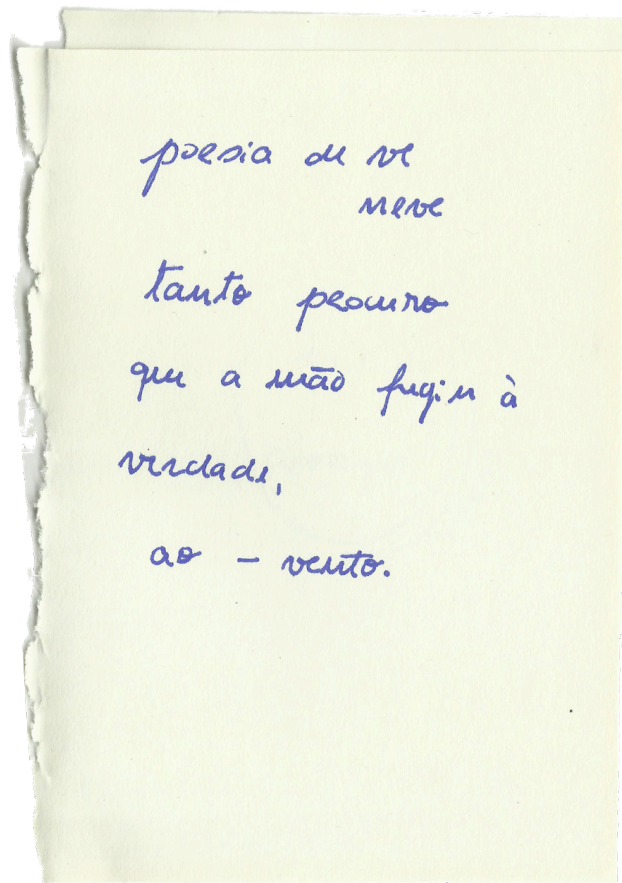 poesia de ve
neve
tanto procuro
que a mão fugiu à
verdade,
ao – vento.